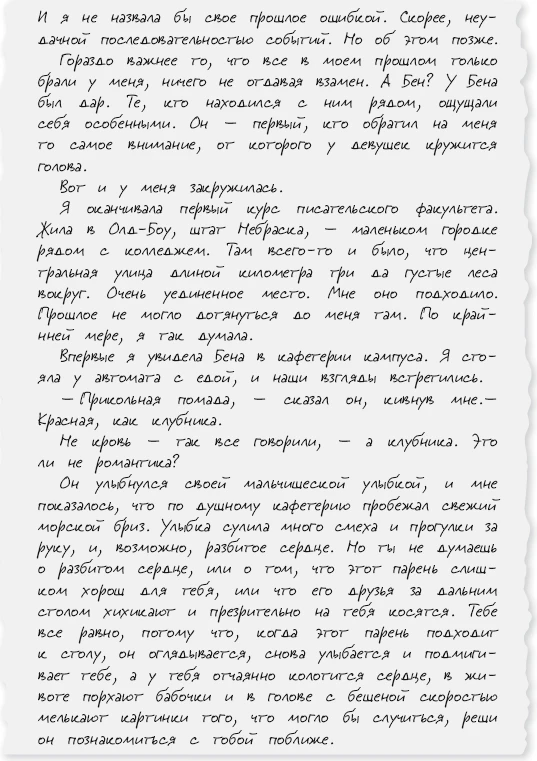 И я не назвала бы свое прошлое ошибкой. Скорее, неу-
дачной последовательностью событий. Но об этом позже.
Гораздо важнее то, что все в моем прошлом только
брали у меня, ничего не отдавая взамен. А Бен? У Бена
был дар. Те, кто находился с ним рядом, ощущали
себя особенными. Он — первый, кто обратил на меня
то самое внимание, от которого у девушек кружится
голова.
Вот и у меня закружилась.
Я оканчивала первый курс писательского факультета.
Жила в Олд-Боу, штат Небраска, — маленьком городке
рядом с колледжем. Там всего-то и было, что цен-
тральная улица длиной километра три да густые леса
вокруг. Очень уединенное место. Мне оно подходило.
Прошлое не могло дотянуться до меня там. По край-
нней мере, я так думала.
Впервые я увидела Бена в кафетерии кампуса. Я сто-
яла у автомата с едой, и наши взгляды встретились.
— Прикольная помада, — сказал он, кивнув мне.—
Красная, как клубника.
Не кровь — так все говорили, — а клубника. Это
ли не романтика?
Он улыбнулся своей мальчишеской улыбкой, и мне
показалось, что по душному кафетерию пробежал свежий
морской бриз. Улыбка сулила много смеха и прогулки за
руку, и, возможно, разбитое сердце. Но ты не думаешь
о разбитом сердце, или о том, что этот парень слиш-
ком хорош для тебя, или что его друзья за дальним
столом хихикают и презрительно на тебя косятся. Тебе
все равно, потому что, когда этот парень подходит
к столу, он оглядывается, снова улыбается и подмиги-
вает тебе, а у тебя отчаянно колотится сердце, в жи-
воте порхают бабочки и в голове с бешеной скоростью
мелькают картинки того, что могло бы случиться, реши
он познакомиться с тобой поближе.